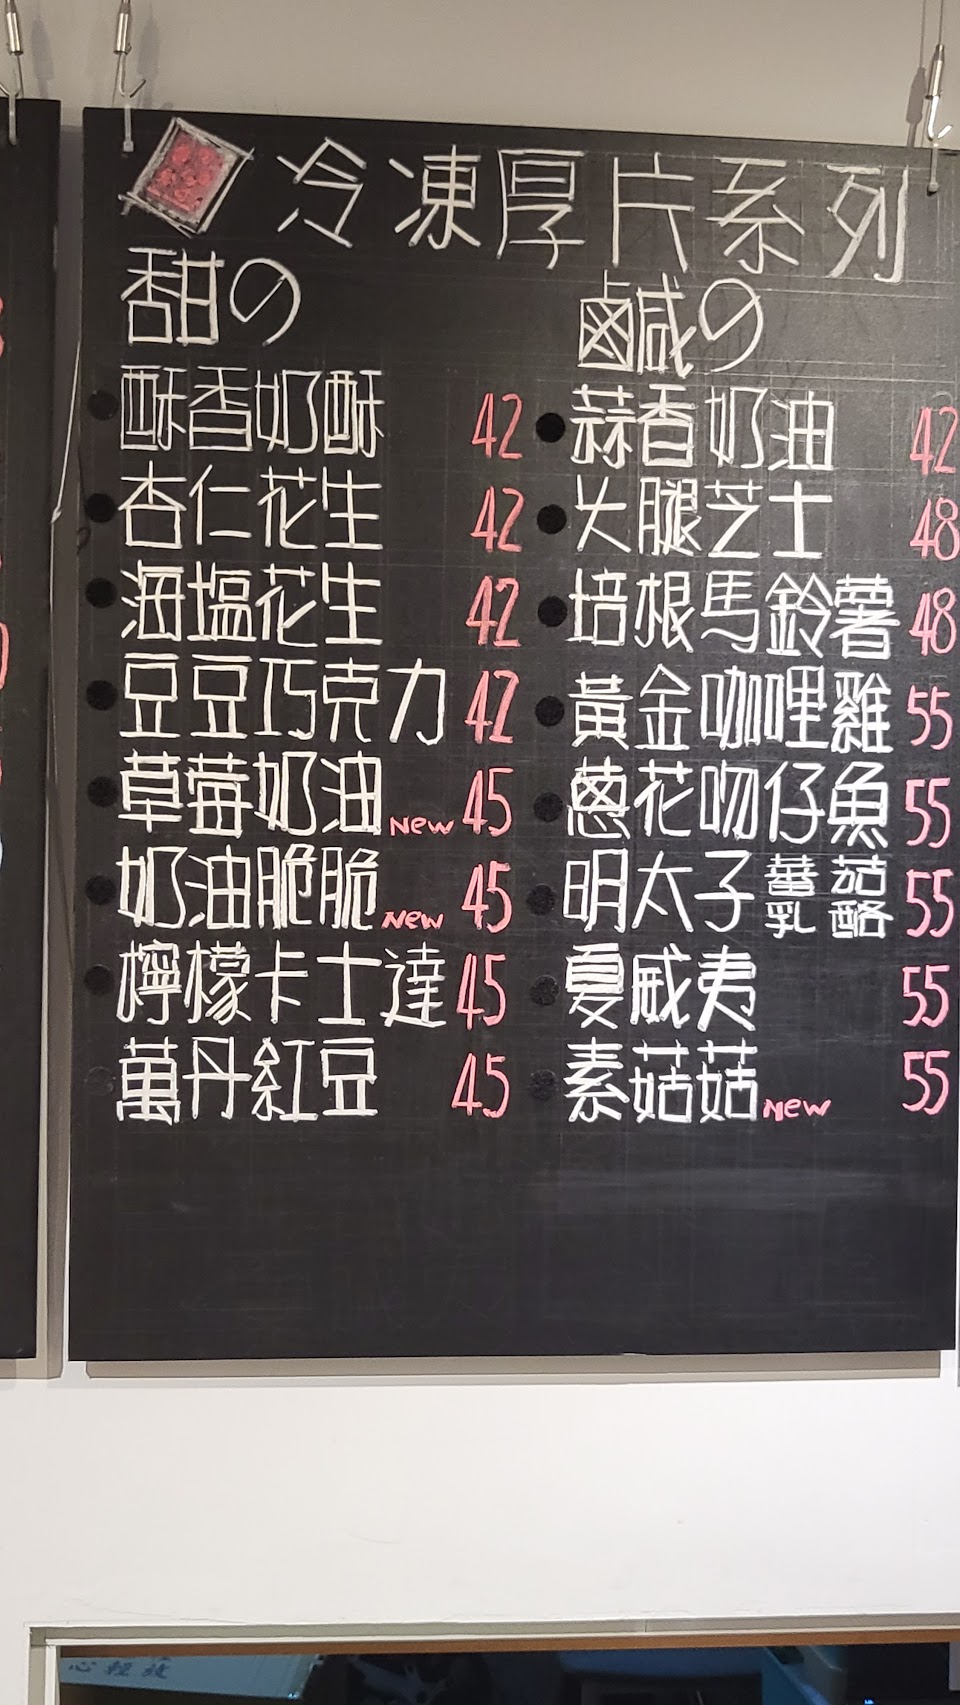 冷凍厚片系列
甜の
酥香奶酥 42
杏仁花生 42
海塩花生 42
豆豆巧克力 42
草莓奶油 New 45
奶油脆脆 New 45
檸檬卡士達 45
萬丹紅豆 45
鹹の
蒜香奶油 42
火腿芝士 48
培根馬鈴薯 48
黃金咖哩雞 55
蔥花吻仔魚 55
明太子蕃茄乳酪 55
夏威夷 55
素菇菇 New 55